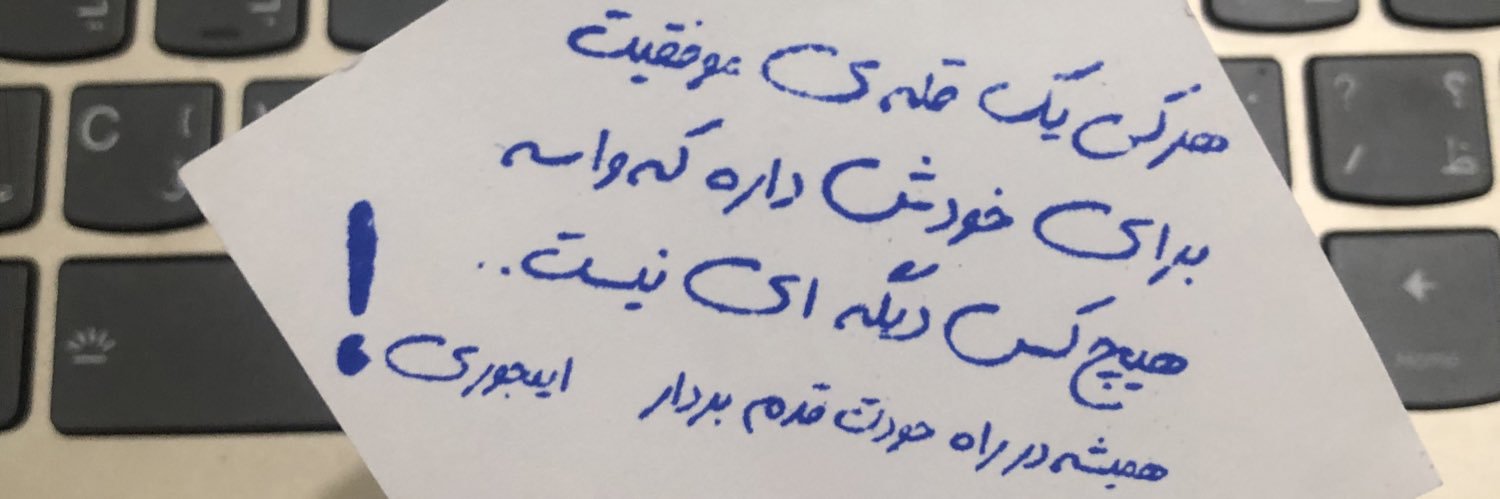 هرکس یک قله‌ی موفقیت
برای خودش داره که واسه
هیچ کس دیگه ای نیست..
همیشه در راه خودت قدم بردار اینجوری!
C
؟
?
/
ظ